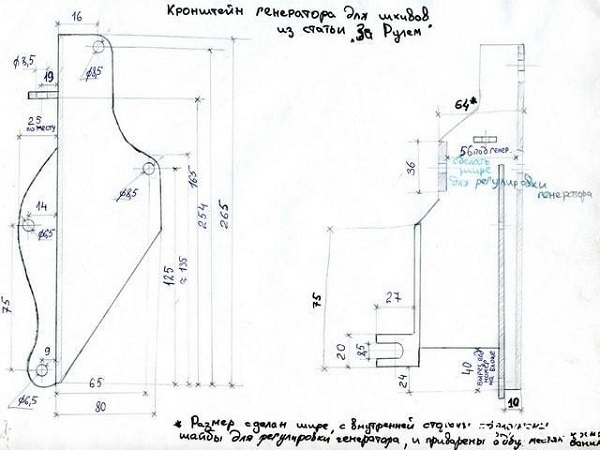 Кронштейн генератора для шкивов
из статьи "За Рулем"
16
ф8,5
19
ф8,5
25
по месту
64*
56 под генер.
сделать
шире
для регулировки
генератора
36
14
ф6,5
ф8,5
165
254
265
125
≈ 135
75
75
27
20
8,5
9
ф6,5
65
80
24
40
на блоке
10
* Размер сделан шире, с внутренней стороны
шайбы для регулировки генератора, и приварены